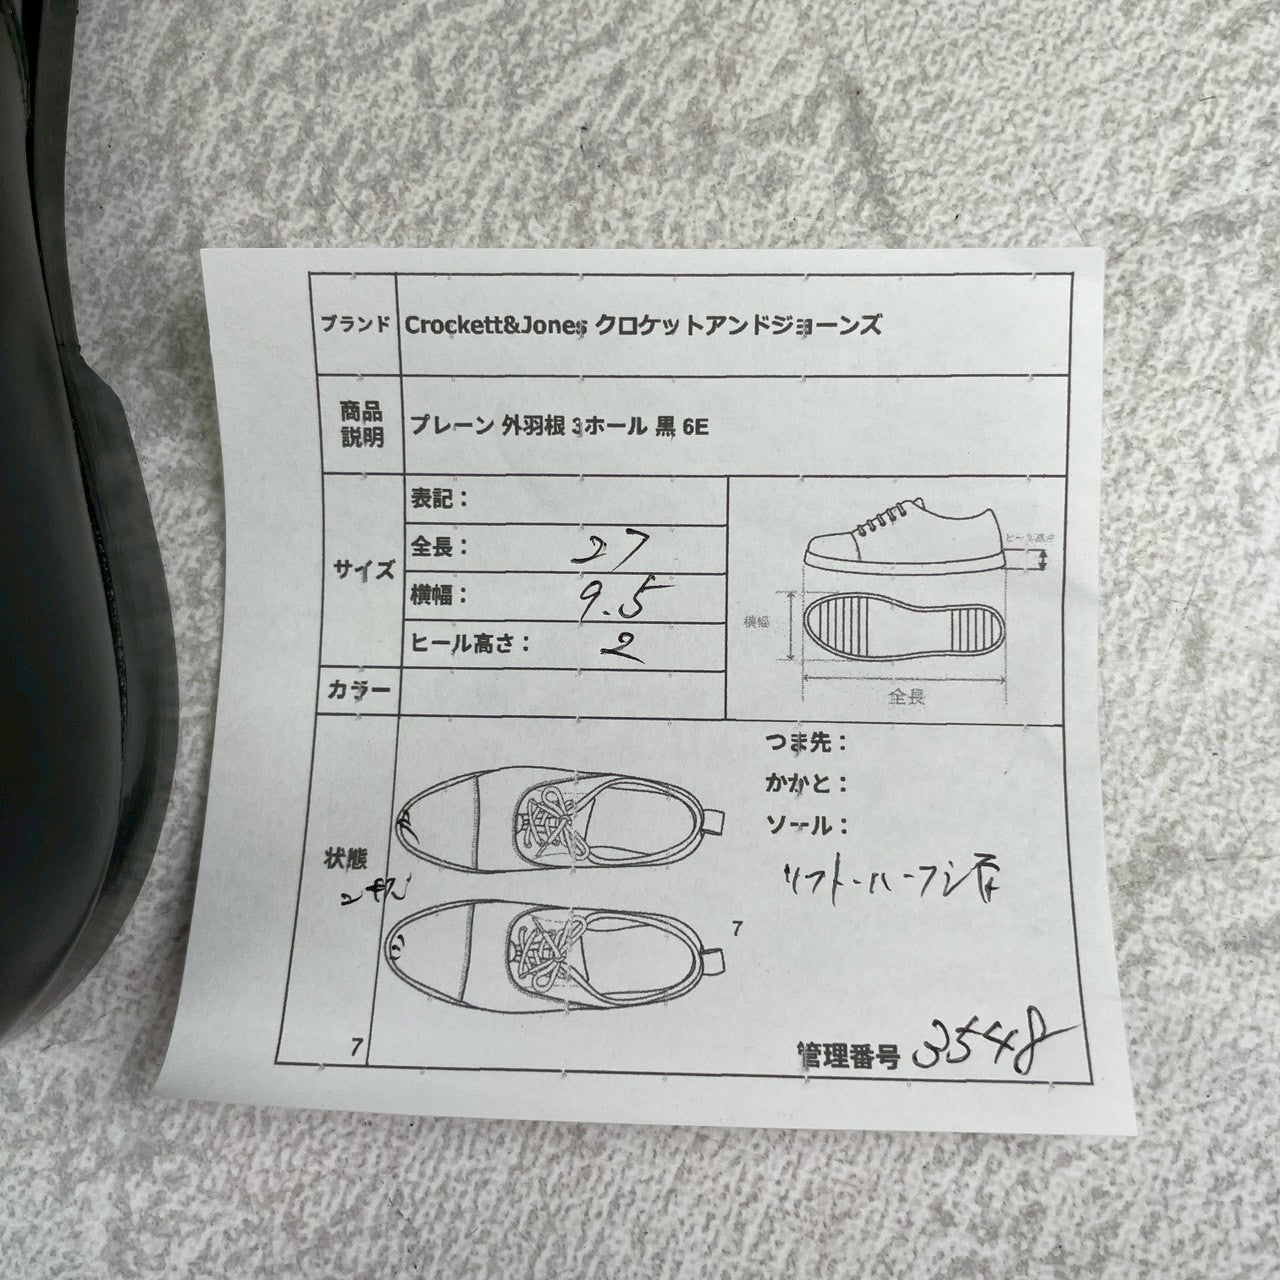 ブランド Crockett&Jones クロケットアンドジョーンズ
商品
説明
プレーン 外羽根 3ホール 黒 6E
サイズ
表記：
全長： 27
横幅： 9.5
ヒール高さ： 2
ヒール高さ
横幅
全長
カラー
状態
つま先：
かかと：
ソール：
リフト・ハーフシ
7
7
管理番号 3548